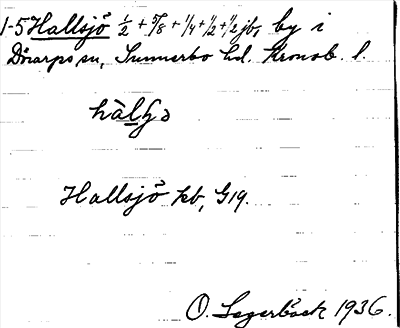 1-5 Hallsjö 1/2 + 5/8 + 1/4 + 1/2 + 1/2 jb, by i
Dörarps sn, Sunnerbo hd. Kronob. l.
Hallsjö kb, G19.
O. Lagerbäck 1936.